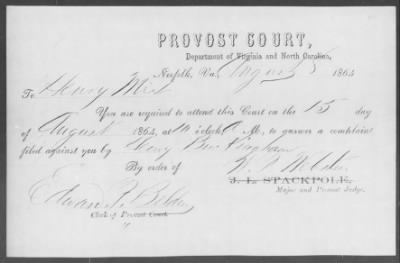 PROVOST COURT,
Department of Virginia and North Carolina,
Norfolk, Va. August 1864
To Henry
You are required to attend this Court on the 15 day
of August 1864, at 10 o'clock A M., to answer a complaint
filed against you by Henry
By order of
J. L. STACKPOLE,
Major and Provost Judge.
Clerk of Provost Court.